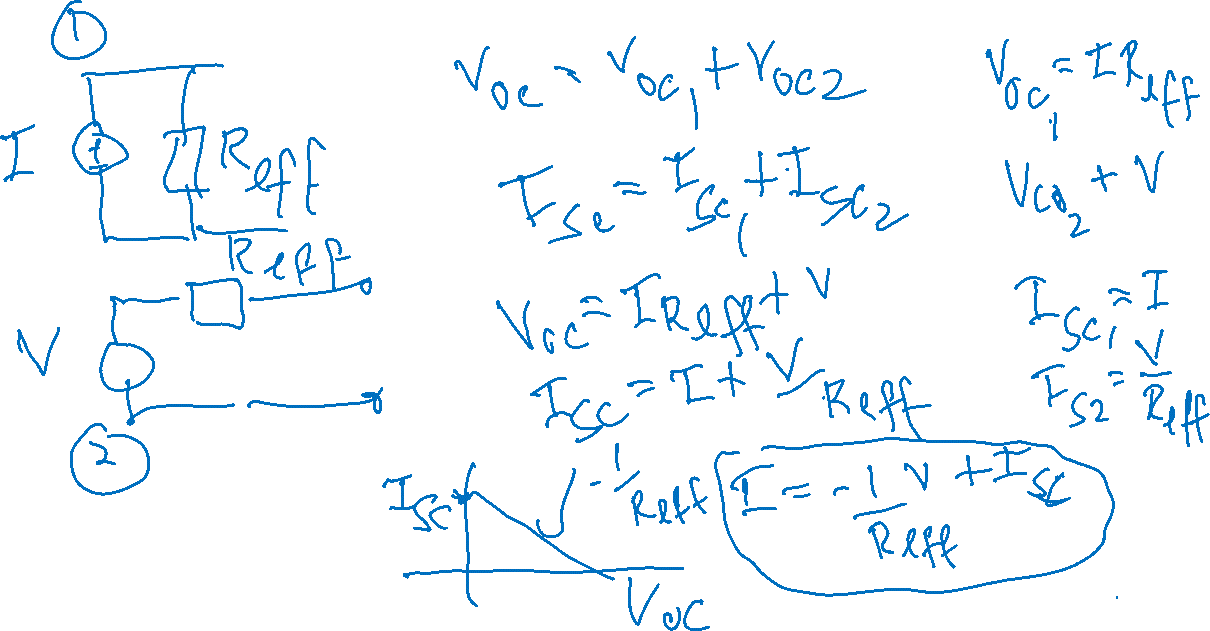 ①
I
R_eff
R_eff
V
②
V_oc = V_oc1 + V_oc2
I_sc = I_sc1 + I_sc2
V_oc = I R_eff + V
I_sc = I + V/R_eff
V_oc1 = I R_eff
V_co2 + V
I_sc1 = I
I_s2 = V/R_eff
I_sc
-1/R_eff
I = -1/R_eff V + I_sc
V_oc